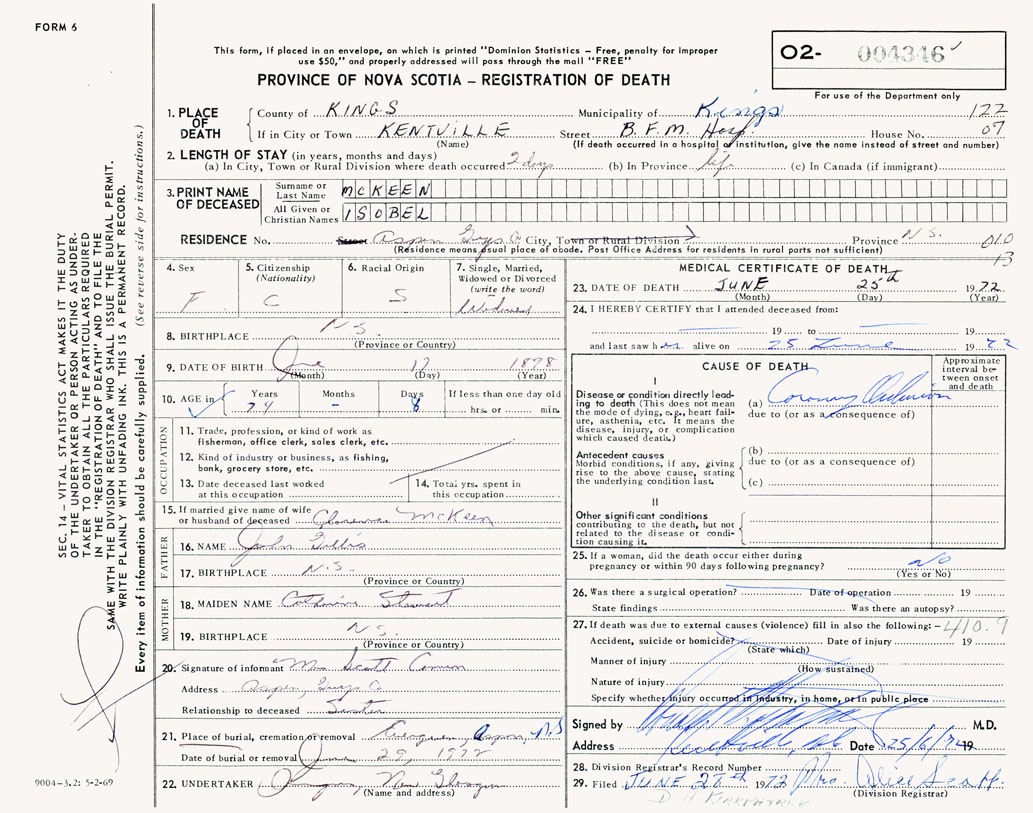 FORM 6
This form, if placed in an envelope, on which is printed "Dominion Statistics – Free, penalty for improper
use $50," and properly addressed will pass through the mail "FREE"
PROVINCE OF NOVA SCOTIA – REGISTRATION OF DEATH
O2- 004346
For use of the Department only
SEC. 14 – VITAL STATISTICS ACT MAKES IT THE DUTY
OF THE UNDERTAKER OR PERSON ACTING AS UNDER-
TAKER TO OBTAIN ALL THE PARTICULARS REQUIRED
IN THE "REGISTRATION OF DEATH" AND TO FILE THE
SAME WITH THE DIVISION REGISTRAR WHO SHALL ISSUE THE BURIAL PERMIT.
WRITE PLAINLY WITH UNFADING INK. THIS IS A PERMANENT RECORD.
Every item of information should be carefully supplied. (See reverse side for instructions.)
1. PLACE OF DEATH
County of KINGS Municipality of Kings 122
If in City or Town KENTVILLE Street B.F.M. Hosp. House No. 07
(Name) (If death occurred in a hospital or institution, give the name instead of street and number)
2. LENGTH OF STAY (in years, months and days)
(a) In City, Town or Rural Division where death occurred 2 days (b) In Province life (c) In Canada (if immigrant)
3. PRINT NAME OF DECEASED
Surname or Last Name McKEEN
All Given or Christian Names ISOBEL
RESIDENCE No. Street Aspen Guys Co City, Town or Rural Division Province N.S. 010
(Residence means usual place of abode. Post Office Address for residents in rural parts not sufficient) 13
4. Sex F
5. Citizenship (Nationality) C
6. Racial Origin S
7. Single, Married, Widowed or Divorced (write the word) Widowed
8. BIRTHPLACE N.S.
(Province or Country)
9. DATE OF BIRTH June 17 1898
(Month) (Day) (Year)
10. AGE in Years 74 Months – Days 8 If less than one day old hrs. or min.
OCCUPATION
11. Trade, profession, or kind of work as
fisherman, office clerk, sales clerk, etc.
12. Kind of industry or business, as fishing,
bank, grocery store, etc.
13. Date deceased last worked
at this occupation
14. Total yrs. spent in
this occupation
15. If married give name of wife
or husband of deceased Clarence McKeen
FATHER
16. NAME John Gillis
17. BIRTHPLACE N.S.
(Province or Country)
MOTHER
18. MAIDEN NAME Catherine Stewart
19. BIRTHPLACE N.S.
(Province or Country)
20. Signature of informant Mrs Scott
Address Aspen, Guys Co
Relationship to deceased Sister
21. Place of burial, cremation or removal Evergreen Aspen, N.S
Date of burial or removal June 29, 1972
22. UNDERTAKER New Glasgow
(Name and address)
9004-3.2: 5-2-69
MEDICAL CERTIFICATE OF DEATH
23. DATE OF DEATH JUNE 25th 1972
(Month) (Day) (Year)
24. I HEREBY CERTIFY that I attended deceased from:
19 to 19
and last saw her alive on 25 June 1972
CAUSE OF DEATH
Approximate interval between onset and death
I
Disease or condition directly lead-
ing to death (This does not mean
the mode of dying, e.g., heart fail-
ure, asthenia, etc. It means the
disease, injury, or complication
which caused death.)
(a) Coronary Occlusion
due to (or as a consequence of)
Antecedent causes
Morbid conditions, if any, giving
rise to the above cause, stating
the underlying condition last.
(b)
due to (or as a consequence of)
(c)
II
Other significant conditions
contributing to the death, but not
related to the disease or condi-
tion causing it.
25. If a woman, did the death occur either during
pregnancy or within 90 days following pregnancy? No
(Yes or No)
26. Was there a surgical operation? Date of operation 19
State findings Was there an autopsy?
27. If death was due to external causes (violence) fill in also the following: – 410.9
Accident, suicide or homicide? Date of injury 19
(State which)
Manner of injury
(How sustained)
Nature of injury
Specify whether injury occurred in industry, in home, or in public place
Signed by M.D.
Address Kentville, NS Date 25/6/72 19
28. Division Registrar's Record Number
29. Filed JUNE 28th 1972 Mrs. Alice Scott
(Division Registrar)
D. H. KIRKPATRICK